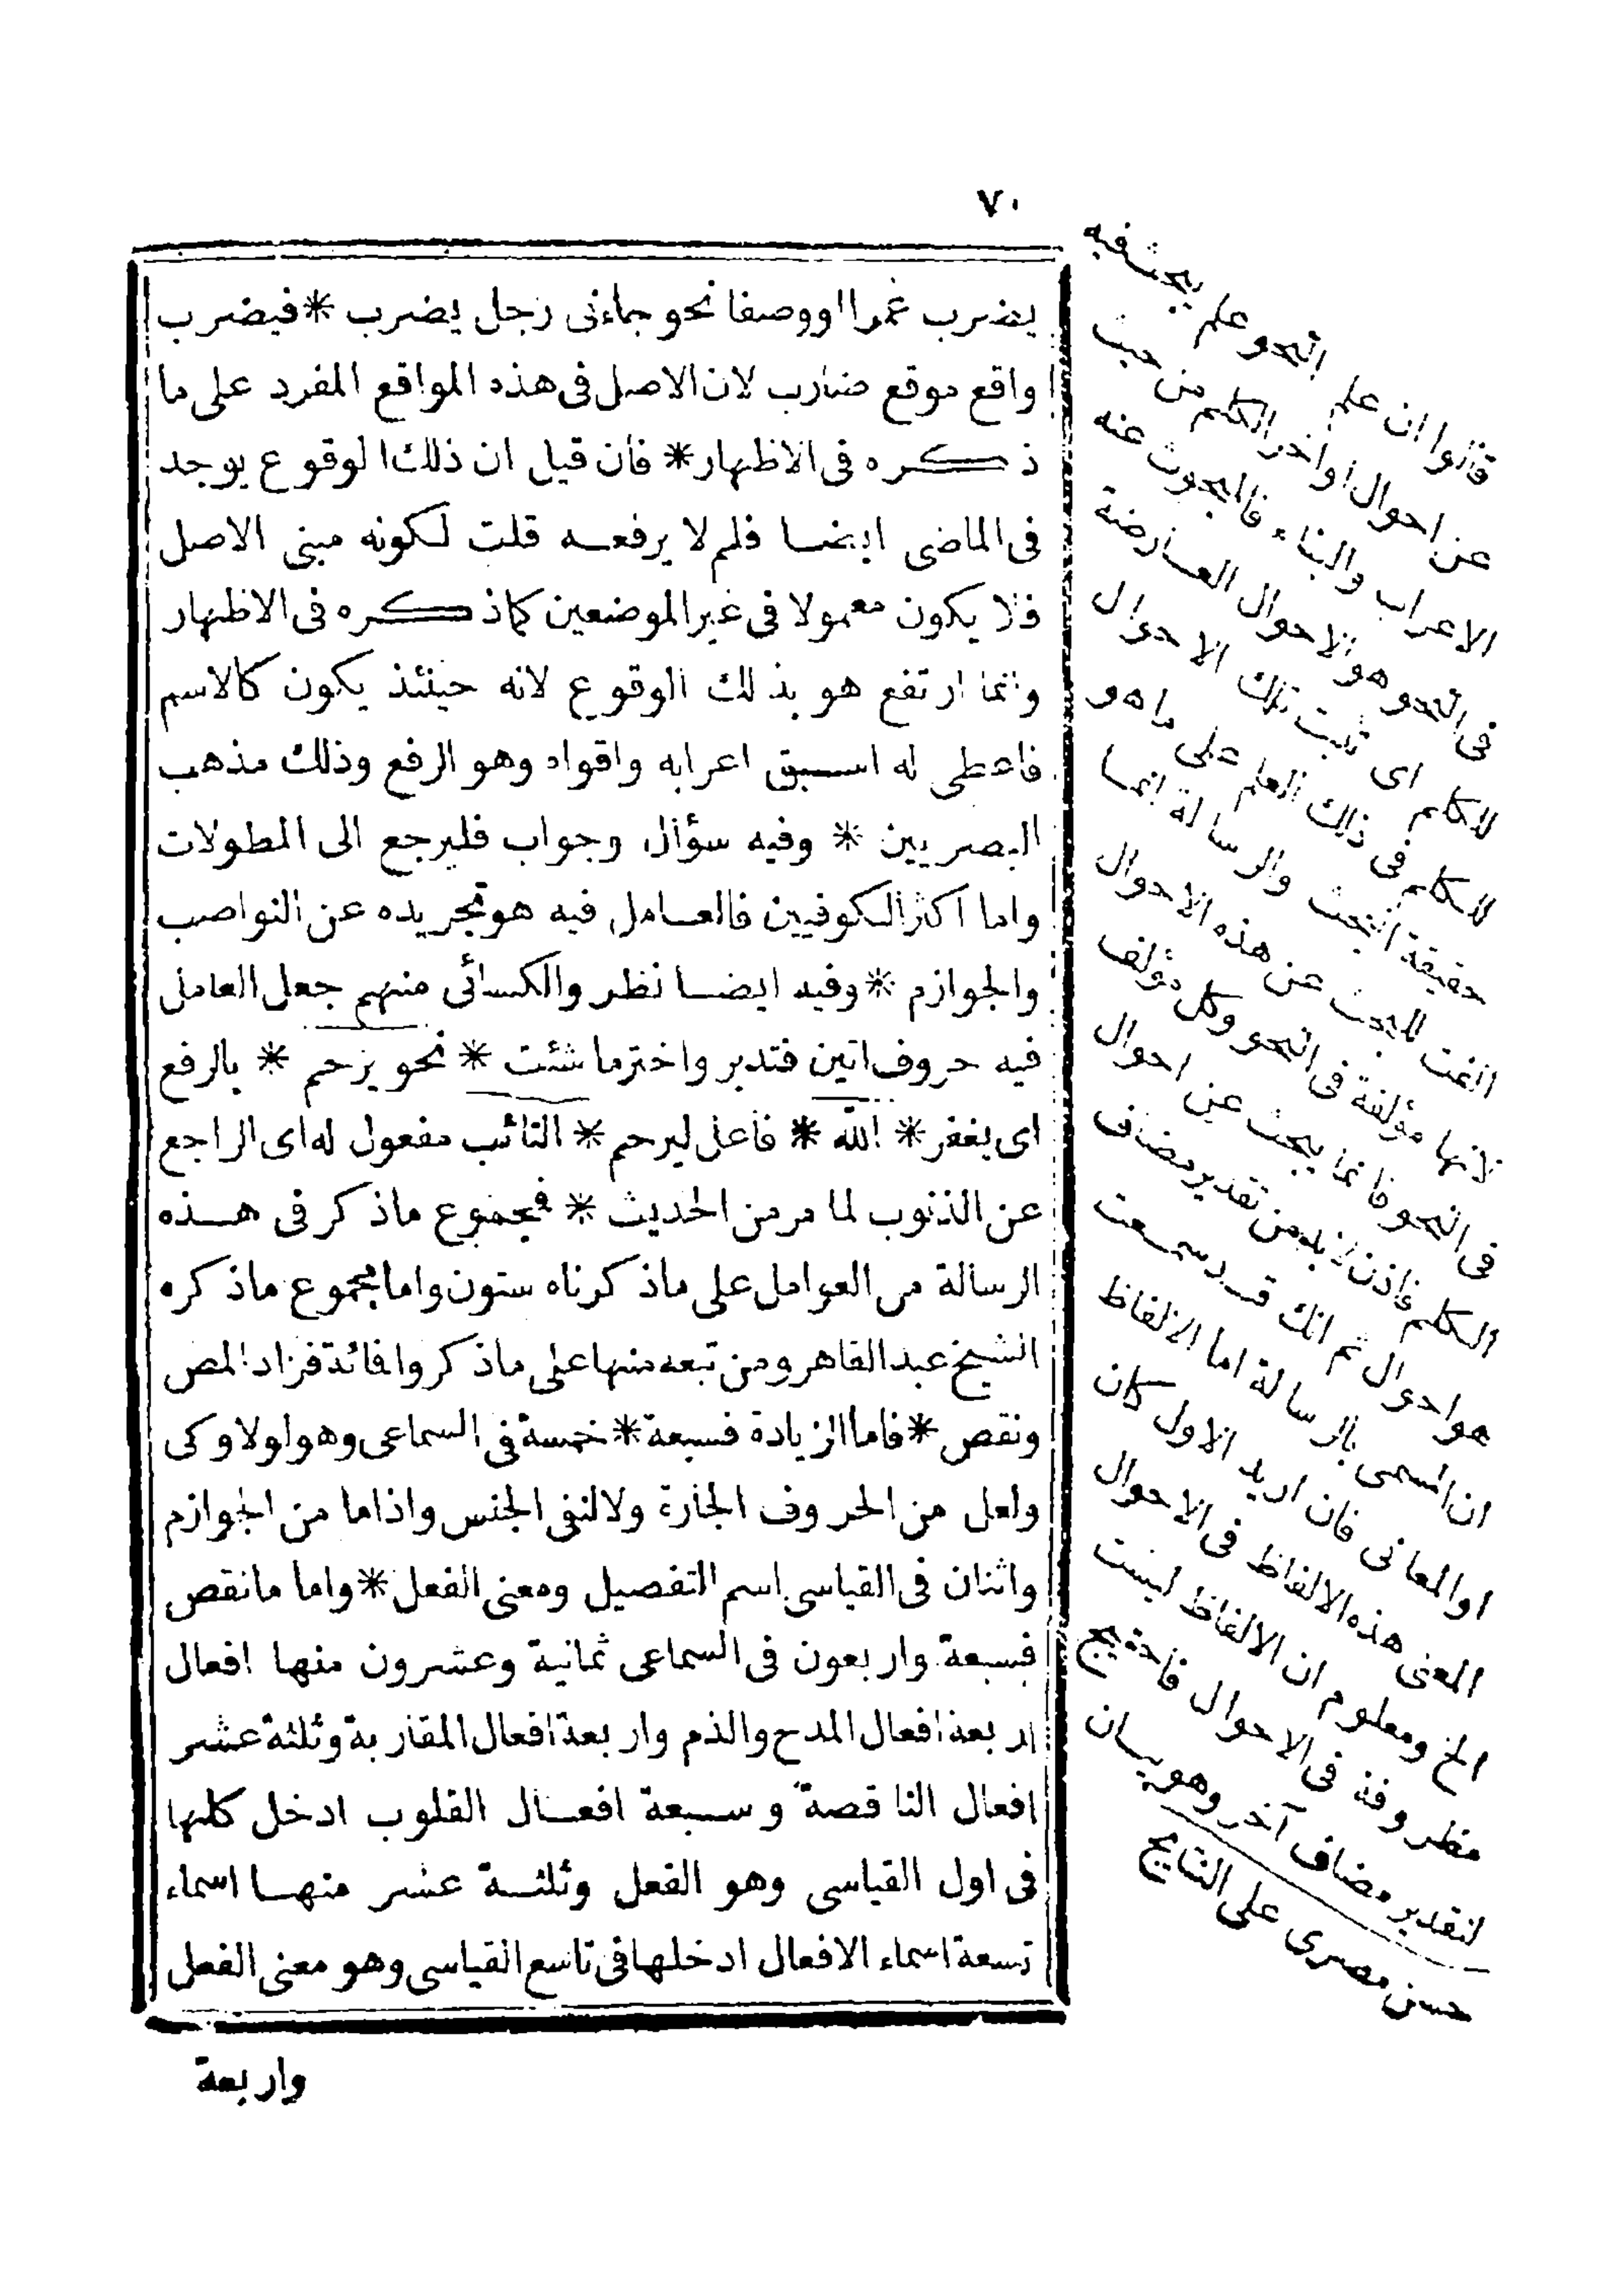 ٧٠
يضرب عمرا او وصفا نحو جاءنى رجل يضرب * فيضرب
واقع موقع ضارب لان الاصل فى هذه المواقع المفرد على ما
ذكره فى الاظهار * فان قيل ان ذلك الوقوع يوجد
فى الماضى ايضا فلم لا يرفعه قلت لكونه مبنى الاصل
فلا يكون معمولا فى غير الموضعين كما ذكره فى الاظهار
وانما ارتفع هو بذلك الوقوع لانه حينئذ يكون كالاسم
فاعطى له اسبق اعرابه واقواه وهو الرفع وذلك مذهب
البصريين * وفيه سؤال وجواب فليرجع الى المطولات
واما اكثر الكوفيين فالعامل فيه هو تجريده عن النواصب
والجوازم * وفيه ايضا نظر والكسائى منهم جعل العامل
فيه حروف اتين فتدبر واختر ما شئت * نحو يرحم * بالرفع
اى يغفر * الله * فاعل ليرحم * التائب مفعول له اى الراجع
عن الذنوب لما مر من الحديث * فمجموع ماذكر فى هذه
الرسالة من العوامل على ماذكرناه ستون واما مجموع ماذكره
الشيخ عبد القاهر ومن تبعه منها على ماذكروا فائدة فزاد المص
ونقص * فاما الزيادة فسبعة * خمسة فى السماعى وهو لولا وكى
ولعل من الحروف الجارة ولا لنفى الجنس واذاما من الجوازم
واثنان فى القياسى اسم التفضيل ومعنى الفعل * واما مانقص
فسبعة واربعون فى السماعى ثمانية وعشرون منها افعال
اربعة افعال المدح والذم واربعة افعال المقاربة وثلثة عشر
افعال الناقصة وسبعة افعال القلوب ادخل كلها
فى اول القياسى وهو الفعل وثلثة عشر منها اسماء
تسعة اسماء الافعال ادخلها فى تاسع القياسى وهو معنى الفعل
واربعة
قالوا ان علم النحو علم يبحث فيه
عن احوال اواخر الكلم من حيث
الاعراب والبناء فالمبحوث عنه
فى النحو هو الاحوال العارضة
للكلم اى ثبت تلك الاحوال
للكلم فى ذلك العلم على ما هو
حقيقة البحث والرسالة انما
الفت للبحث عن هذه الاحوال
لانها مؤلفة فى النحو وكل مؤلف
فى النحو فانما يبحث عن احوال
الكلم فاذن لابد من تقدير مضاف
هو احوال ثم انك قد سمعت
ان المسمى بالرسالة اما الالفاظ
او المعانى فان اريد الاول كان
المعنى هذه الالفاظ فى الاحوال
الخ ومعلوم ان الالفاظ ليست
مظروفة فى الاحوال فاحتيج
لتقدير مضاف آخر وهو بيان
حسن مصرى على النتايج